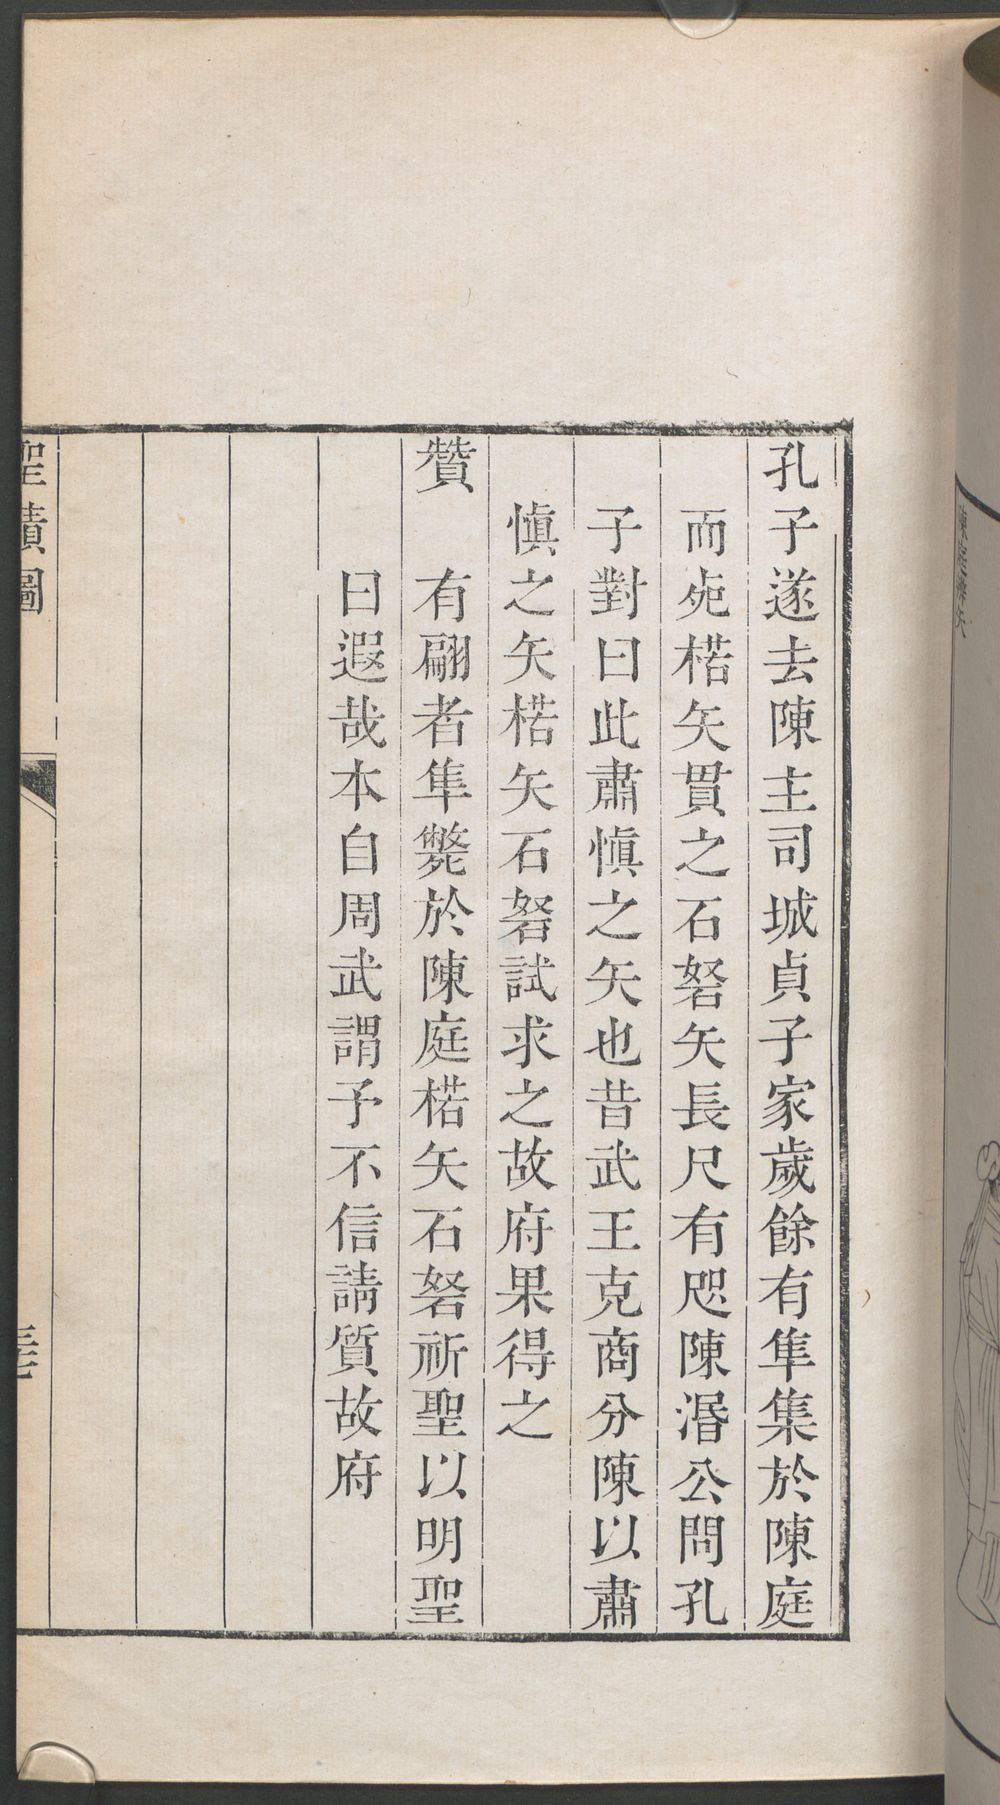 孔子遂去陳主司城貞子家歲餘有隼集於陳庭
而死楛矢貫之石砮矢長尺有咫陳湣公問孔
子對曰此肅慎之矢也昔武王克商分陳以肅
慎之矢楛矢石砮試求之故府果得之
贊　有翩者隼斃於陳庭楛矢石砮祈聖以明聖
曰遐哉本自周武謂予不信請質故府
聖蹟圖